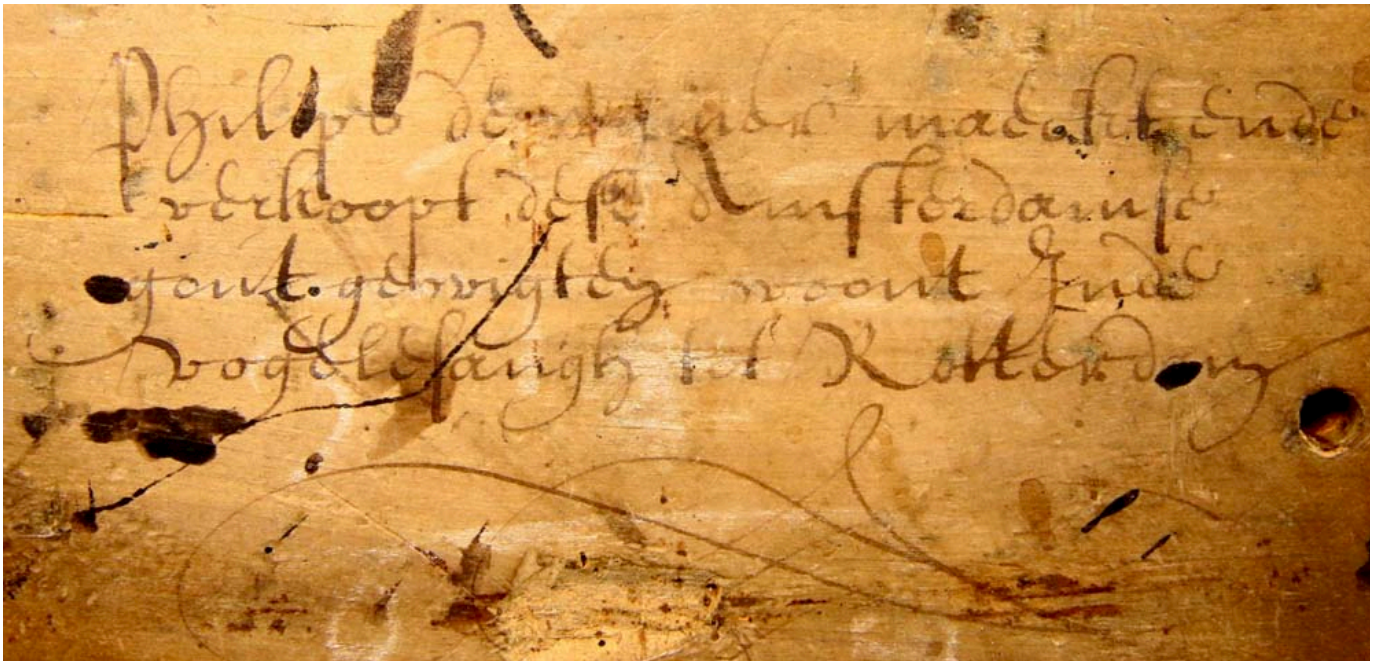 Philips maeckt ende
verkoopt dese Amsterdamse
gout gewigten woont Inde
vogelesangh tot Rotterdam